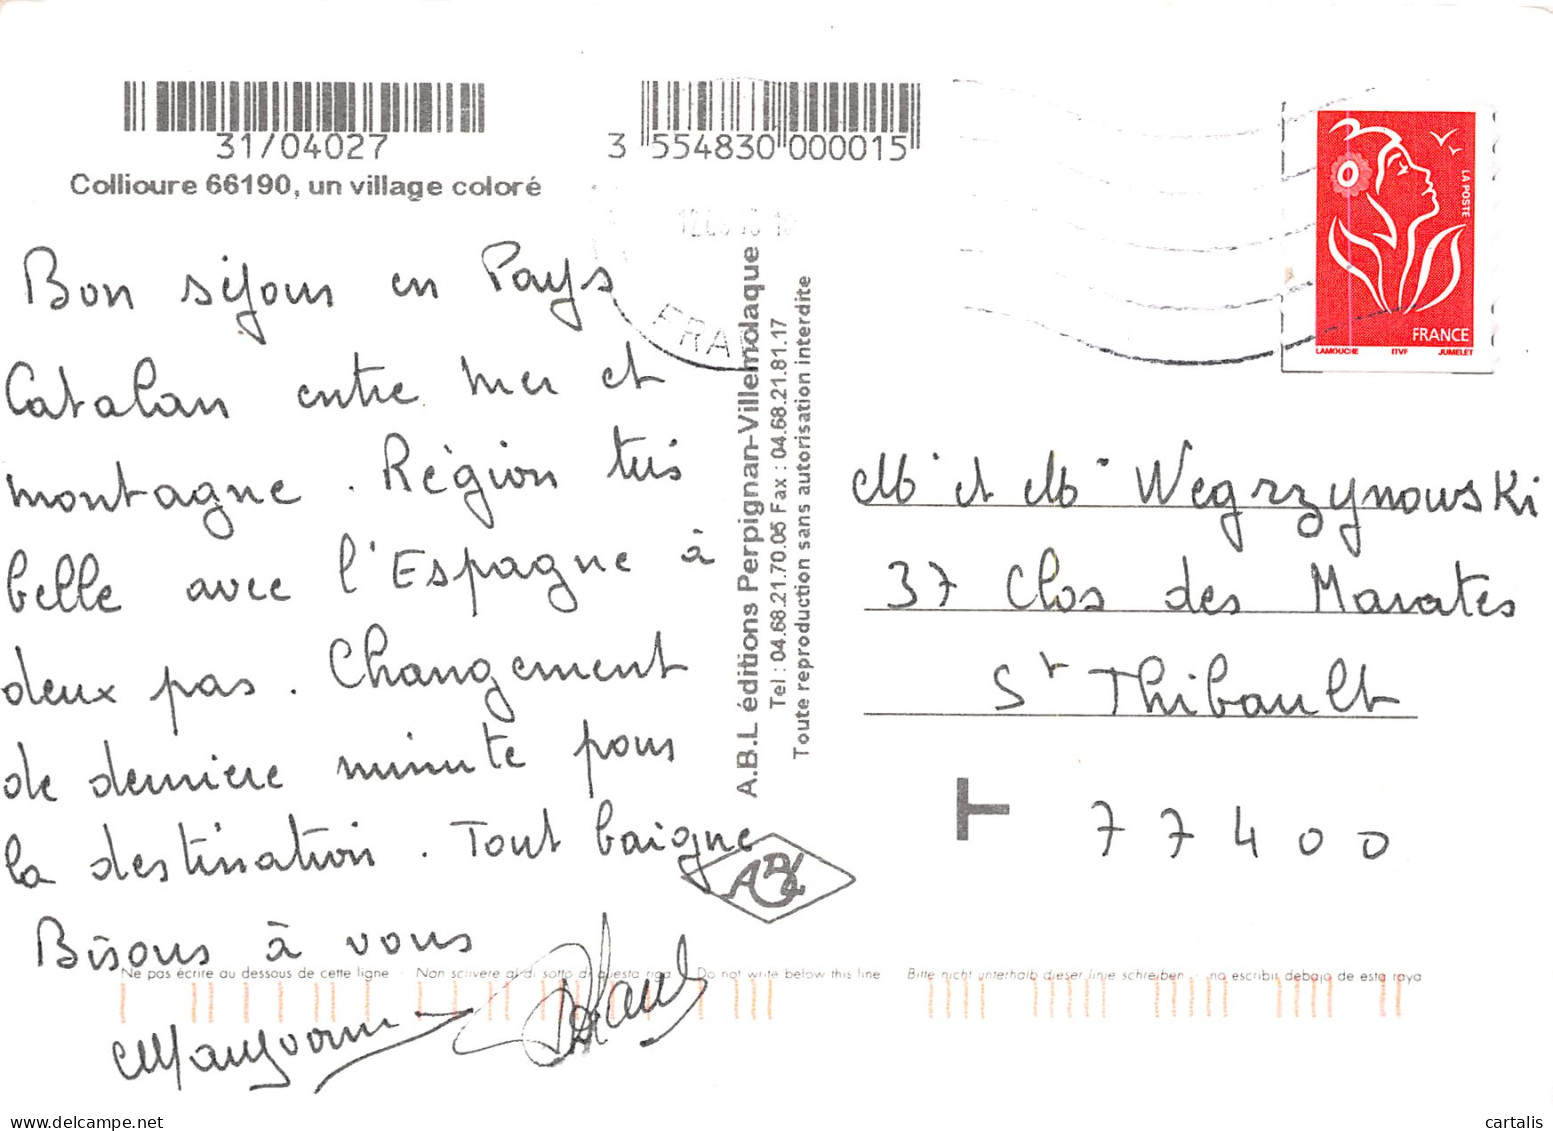 31/04027
3 554830 000015
Collioure 66190, un village coloré
Bon séjour en Pays
Catalan entre mer et
montagne. Région très
belle avec l'Espagne à
deux pas. Changement
de dernière minute pour
la destination. Tout baigne
Bisous à vous
A.B.L éditions Perpignan-Villemolaque
Tel : 04.68.21.70.05 Fax : 04.68.21.81.17
Toute reproduction sans autorisation interdite
FRA
LA POSTE
FRANCE
LAMOUCHE ITVF JUMELET
Mr et Me Wegrzynowski
37 Clos des Marates
St Thibault
T 77400
ABL
Ne pas écrire au dessous de cette ligne · Non scrivere al di sotto di questa riga · Do not write below this line Bitte nicht unterhalb dieser linie schreiben · no escribir debajo de esta raya
www.delcampe.net
cartalis